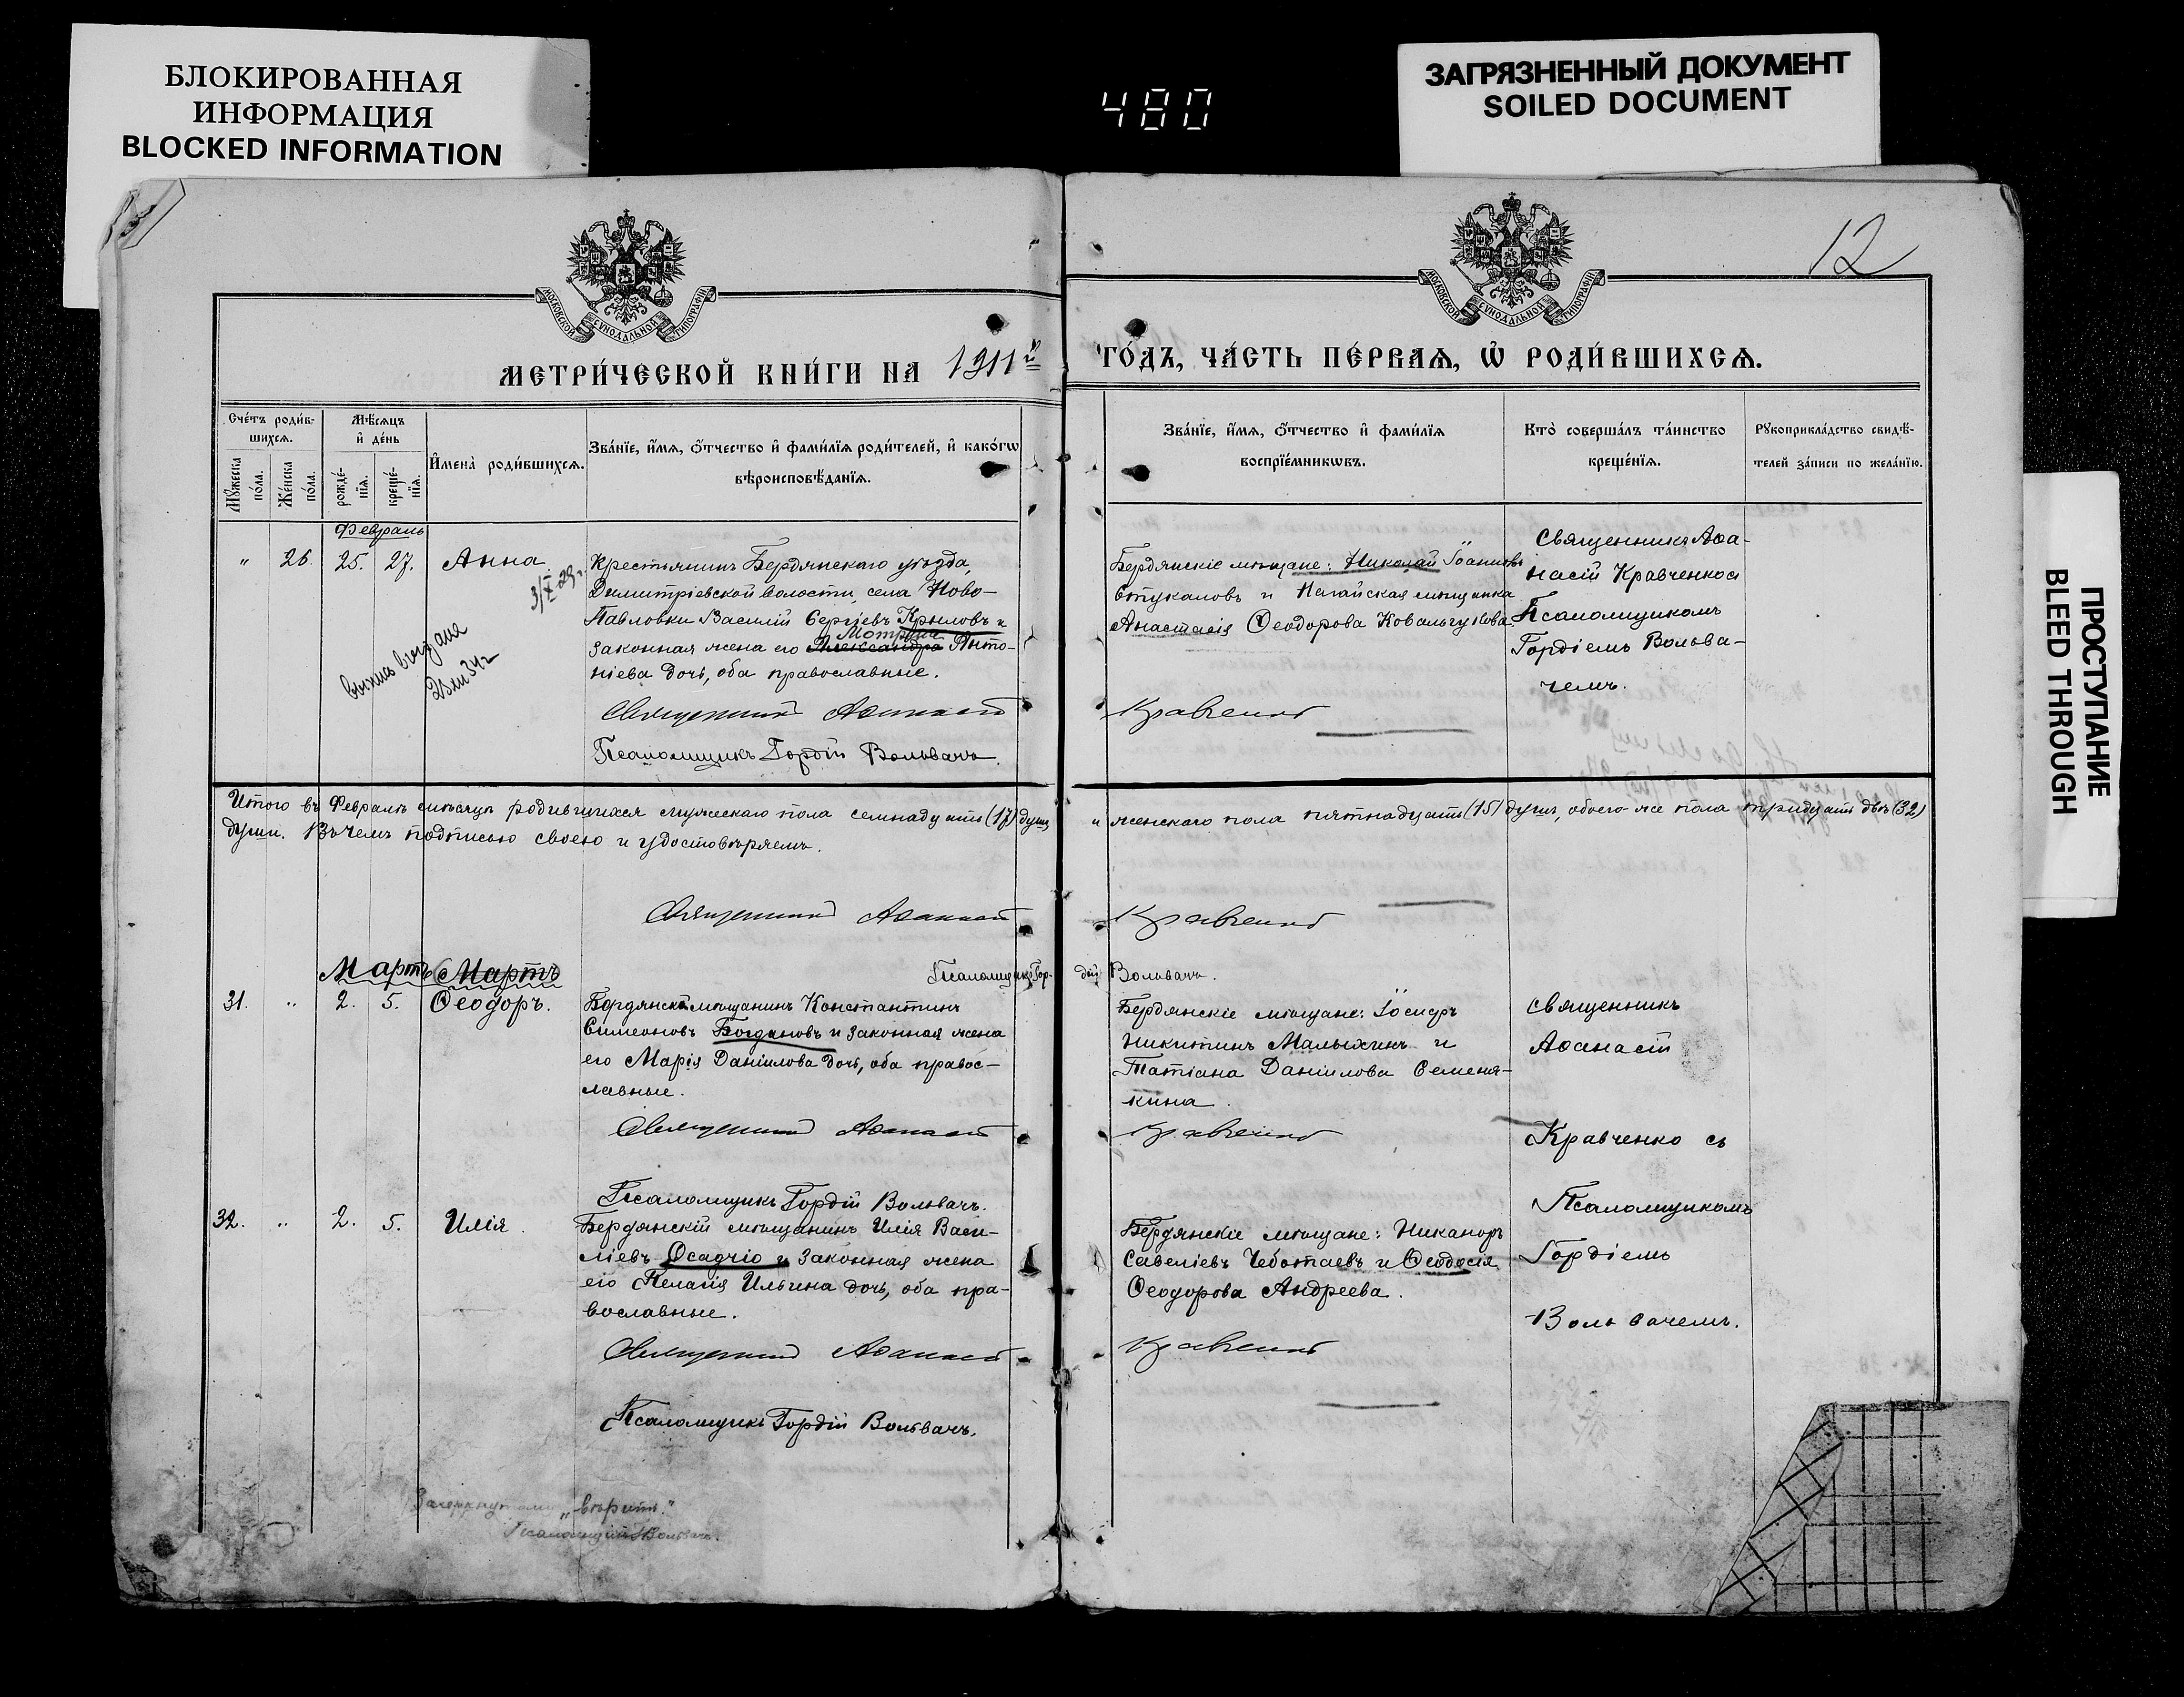 БЛОКИРОВАННАЯ
ИНФОРМАЦИЯ
BLOCKED INFORMATION
480
ЗАГРЯЗНЕННЫЙ ДОКУМЕНТ
SOILED DOCUMENT
ПРОСТУПАНИЕ
BLEED THROUGH
12
МОСКОВСКОЙ СѴНОДАЛЬНОЙ ТИПОГРАФІИ
МОСКОВСКОЙ СѴНОДАЛЬНОЙ ТИПОГРАФІИ
МЕТРИ́ЧЕСКОЙ КНИ́ГИ НА 1911й
ГО́ДЪ, ЧА́СТЬ ПЕ́РВАѦ, Ѡ҆ РОДИ́ВШИХСѦ.
Сче́тъ роди́в-
шихсѧ.
Мѹ́жеска
по́ла.
Же́нска
по́ла.
Мѣ́сѧцъ
и҆ де́нь
рожде́-
нїѧ.
креще́-
нїѧ.
И҆мена̀ роди́вшихсѧ.
Зва́нїе, и҆́мѧ, ѻ҆́тчество и҆ фами́лїѧ роди́телей, и҆ како́гѡ
вѣроисповѣ́данїѧ.
Зва́нїе, и҆́мѧ, ѻ҆́тчество и҆ фами́лїѧ
воспрїе́мникѡвъ.
Кто̀ соверша́лъ та́инство
креще́нїѧ.
Рѹкоприкла́дство свидѣ́-
телей за́писи по жела́нїю.
Февраль
" 26. 25. 27. Анна
Крестьянинъ Бердянскаго уѣзда,
Димитріевской волости, села Ново-
Павловки Василій Сергіевъ Крыловъ и
Мотрона
законная жена его Александра Анто-
ніева дочь, оба православные.
Священникъ Аѳанасій Кравченко
Псаломщикъ Гордій Вольвачъ.
Бердянскіе мѣщане: Николай Іоанновъ
Стукаловъ и Ногайская мѣщанка
Анастасія Ѳеодорова Ковальчукова.
Священникъ Аѳа-
насій Кравченко съ
Псаломщикомъ
Гордіемъ Вольва-
чемъ.
выпись выдана
Итого въ Февралѣ мѣсяцѣ родившихся мужескаго пола семнадцать (17) душъ и женскаго пола пятнадцать (15) душъ, обоего же пола тридцать двѣ (32)
души. Въ чемъ подписью своею и удостовѣряемъ.
Священникъ Аѳанасій Кравченко
Псаломщикъ Гордій Вольвачъ.
Мартъ Мартъ
31. " 2. 5. Ѳеодоръ.
Бердянскій мѣщанинъ Константинъ
Симеоновъ Богдановъ и законная жена
его Марія Даніилова дочь, оба правос-
лавные.
Священникъ Аѳанасій Кравченко
Псаломщикъ Гордій Вольвачъ.
Бердянскіе мѣщане: Іосифъ
Никитинъ Малыхинъ и
Татіана Даніилова Семеня-
кина.
Священникъ
Аѳанасій
Кравченко съ
Псаломщикомъ
Гордіемъ
Вольвачемъ.
32. " 2. 5. Илія.
Бердянскій мѣщанинъ Илія Васи-
ліевъ Осадчію и законная жена
его Пелагія Ильина дочь, оба пра-
вославные.
Священникъ Аѳанасій Кравченко
Псаломщикъ Гордій Вольвачъ.
Бердянскіе мѣщане: Никаноръ
Савеліевъ Чеботаевъ и Ѳеодосія
Ѳеодорова Андреева.
"вѣрить"
Псаломщикъ Вольвачъ.